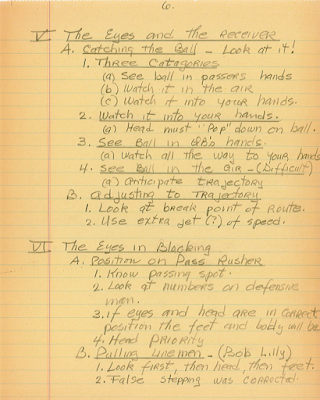 6.
V The Eyes and the Receiver
A. Catching the Ball - Look at it!
1. Three Catagories
(a) See ball in passers hands
(b) Watch it in the air
(c) Watch it into your hands.
2. Watch it into your hands.
(a) Head must "Pop" down on ball.
3. See Ball in QB's hands.
(a) Watch all the way to your hands
4. See Ball in the air - (Difficult)
(a) Anticipate trajectory
B. Adjusting to Trajectory
1. Look at break point of route.
2. Use extra jet (?) of speed.
VI The Eyes in Blocking
A. Position on Pass Rusher
1. Know passing spot.
2. Look at numbers on defensive
man.
3. If eyes and head are in correct
position the feet and body will be
4. Head Priority
B. Pulling Linemen - (Bob Lilly)
1. Look first, then head, then feet.
2. False stepping was corrected.